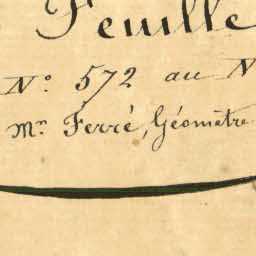 Feuille
N.º 572 au N
Mr. Ferré, Géomètre